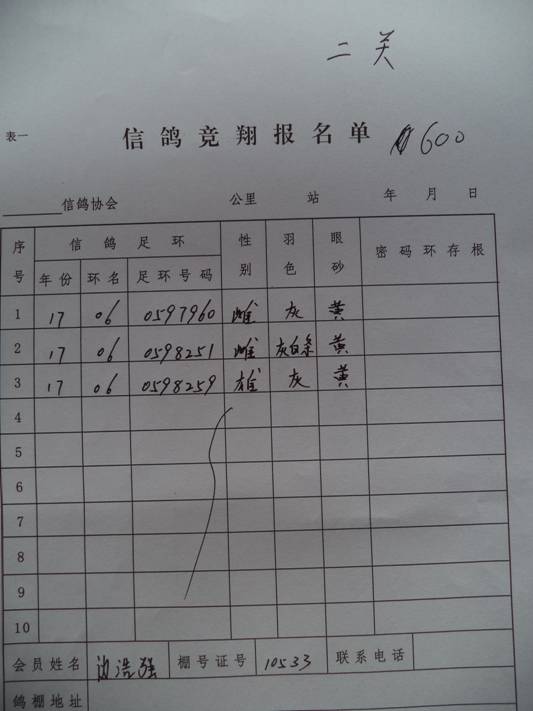 二关
表一
信鸽竞翔报名单 600
信鸽协会 公里 站 年 月 日
序号 信鸽足环 性别 羽色 眼砂 密码环存根
年份 环名 足环号码
1 17 06 0597960 雌 灰 黄
2 17 06 0598251 雌 灰白条 黄
3 17 06 0598259 雄 灰 黄
4
5
6
7
8
9
10
会员姓名 浩强 棚号证号 10533 联系电话
鸽棚地址